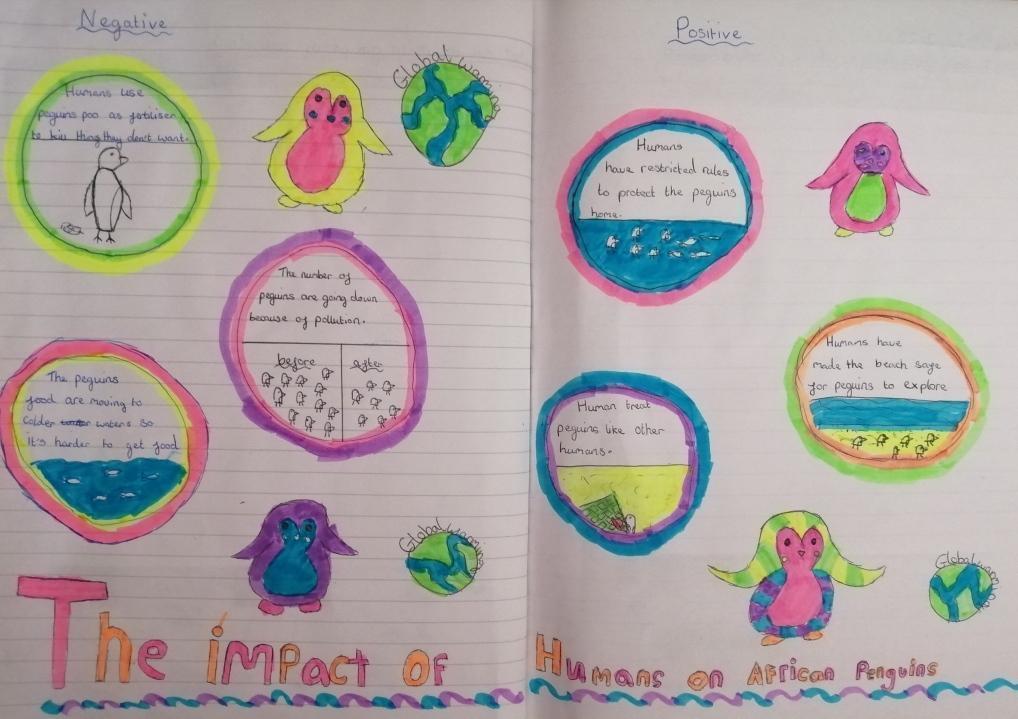 Negative
Humans use
peguins poo as fertiliser
to kill thing they don't want.
Global warming
The number of
peguins are going down
because of pollution.
before
after
The peguins
food are moving to
colder waters so
it's harder to get food
Global warming
Positive
Humans
have restricted rules
to protect the peguins
home.
Humans have
made the beach safe
for peguins to explore
Human treat
peguins like other
humans.
Global warming
The impact of Humans on African Penguins